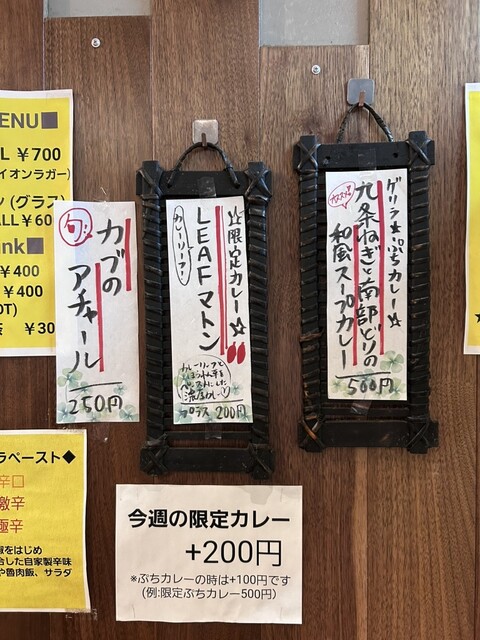 ENU■
L ￥700
イオンラガー)
ン (グラス)
ALL￥60
ink■
￥400
￥400
OT)
￥30
旬
カブの
アチャール
250円
☆限定カレー☆
LEAFマトン
カレーリーフ!
カレーリーフと
ほうれん草を
ペーストにした
濃厚カレー
プラス 200円
ゲリラ☆ぷちカレー☆
オススメ!
九条ねぎと南部どりの
和風スープカレー
500円
ラペースト◆
辛口
激辛
極辛
椒をはじめ
合した自家製辛味
や魯肉飯、サラダ
今週の限定カレー
+200円
※ぷちカレーの時は+100円です
(例:限定ぷちカレー500円)